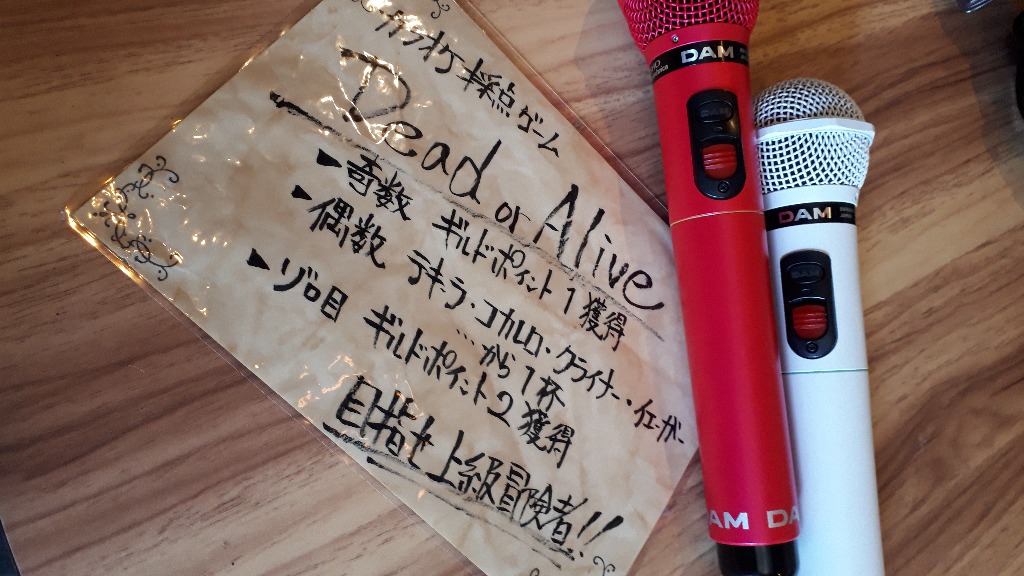 カラオケ採点ゲーム
Dead or Alive
▶奇数 ギルドポイント1獲得
▶偶数 テキラ・コカレロ・クライナー・イエーガー
…から1杯
▶ゾロ目 ギルドポイント2獲得
目指せ上級冒険者!!
DAM
DAM
AM DA